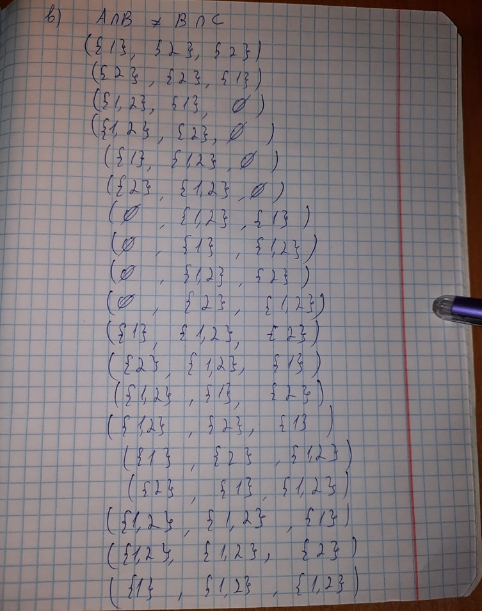 в) A∩B ≠ B∩C
({1}, {2}, {2})
({2}, {2}, {1})
({1,2}, {1}, ∅)
({1,2}, {2}, ∅)
({1}, {1,2}, ∅)
({2}, {1,2}, ∅)
(∅, {1,2}, {1})
(∅, {1}, {1,2})
(∅, {1,2}, {2})
(∅, {2}, {1,2})
({1}, {1,2}, {2})
({2}, {1,2}, {1})
({1,2}, {1}, {2})
({1,2}, {2}, {1})
({1}, {2}, {1,2})
({2}, {1}, {1,2})
({1,2}, {1,2}, {1})
({1,2}, {1,2}, {2})
({1}, {1,2}, {1,2})